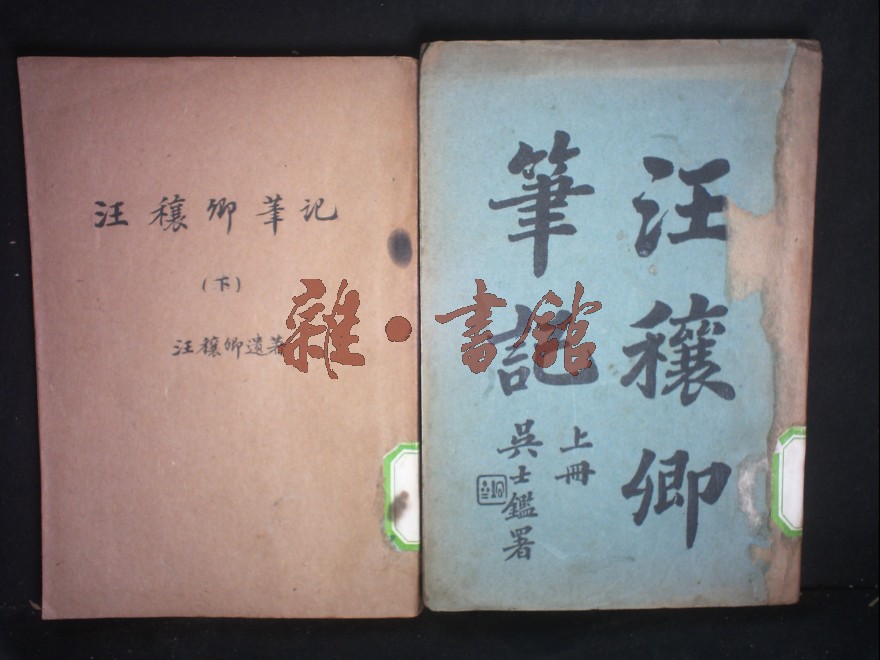 汪穰卿筆記
(下)
汪穰卿遺著
汪穰卿
筆記
上冊
吳士鑑署
雜·書館